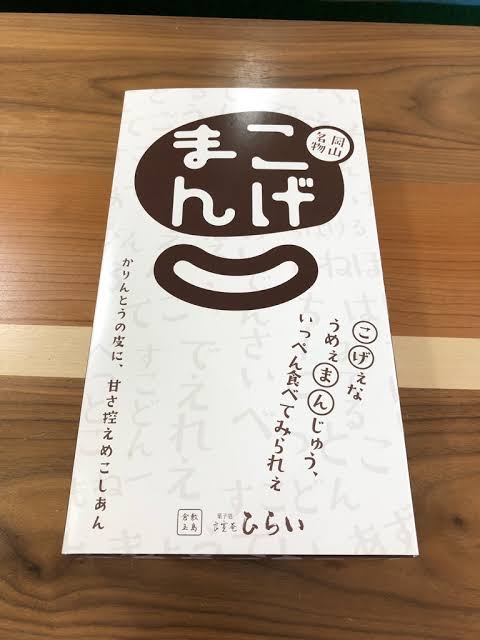 こげ
まん
岡山
名物
こげぇな
うめぇまんじゅう、
いっぺん食べてみられぇ
かりんとうの皮に、甘さ控えめこしあん
倉敷
玉島
菓子処
ひらい